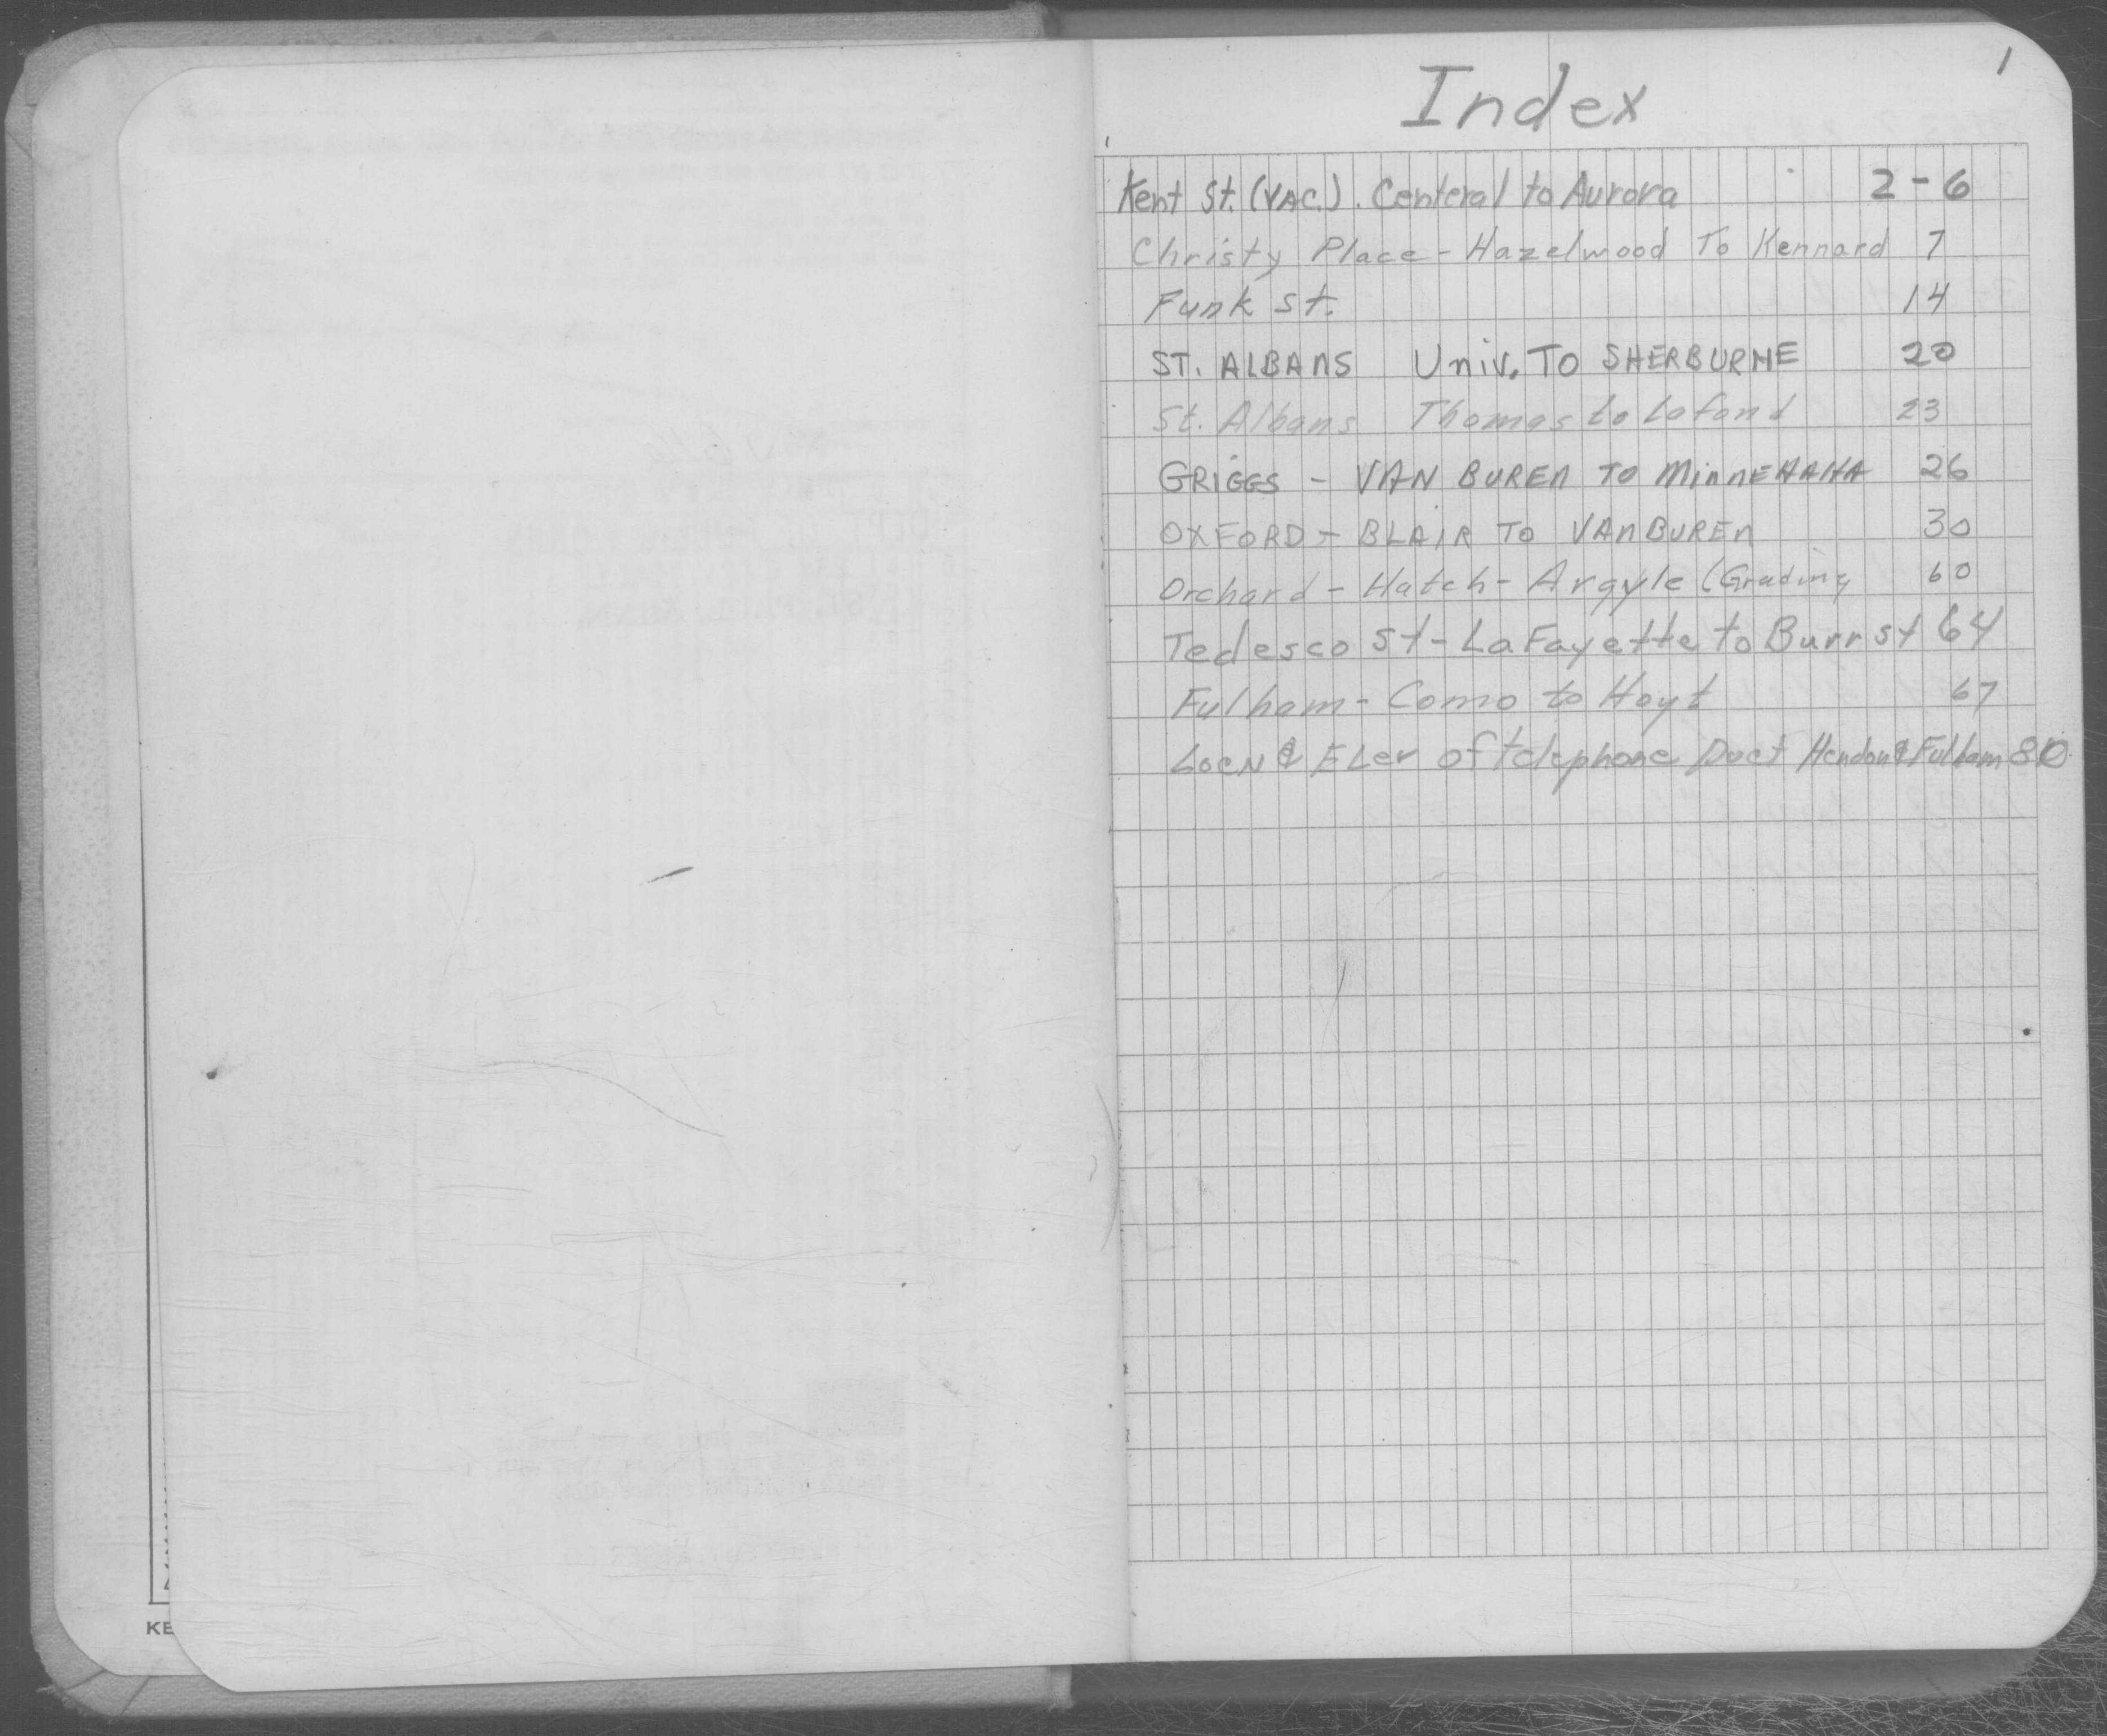 1
Index
Kent St. (VAC.). Centeral to Aurora 2-6
Christy Place - Hazelwood To Kennard 7
Funk St. 14
ST. ALBANS Univ. To SHERBURNE 20
St. Albans Thomas to Lafond 23
GRIGGS - VAN BUREN TO MINNEHAHA 26
OXFORD - BLAIR TO VAN BUREN 30
Orchard - Hatch - Argyle (Grading 60
Tedesco St - LaFayette to Burr st 64
Fulham - Como to Hoyt 67
LocN & ELev of telephone Duct Hendon & Fulham 80
KE